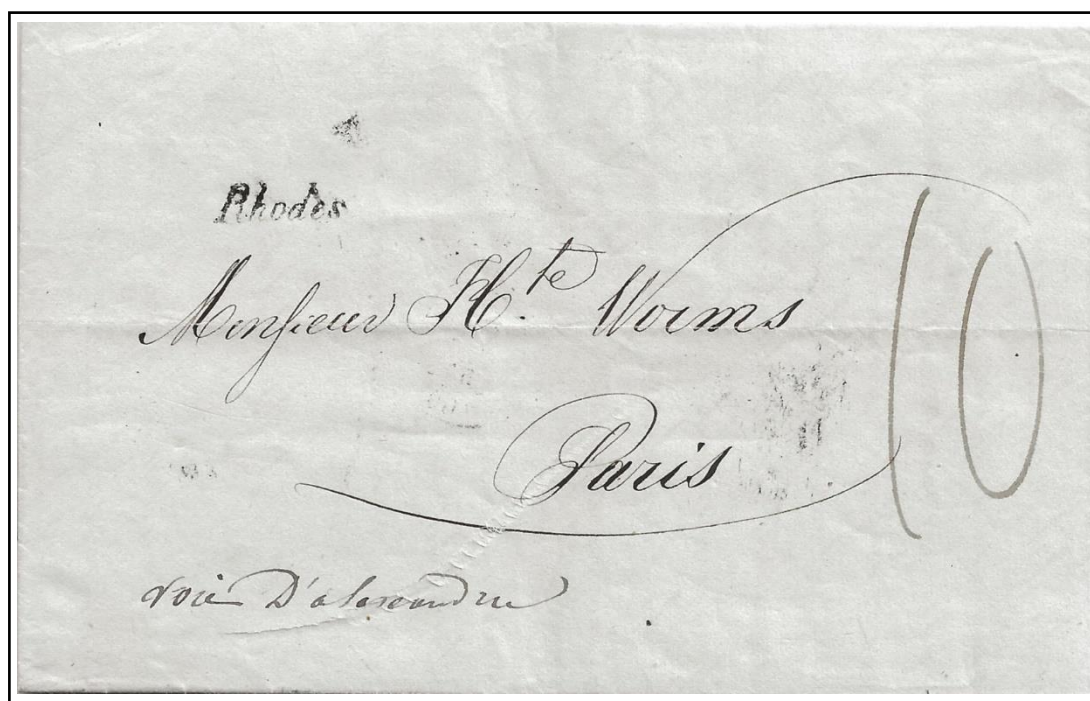 Rhodes
Monsieur H.te Worms
Paris
10
voie D'alexandrie